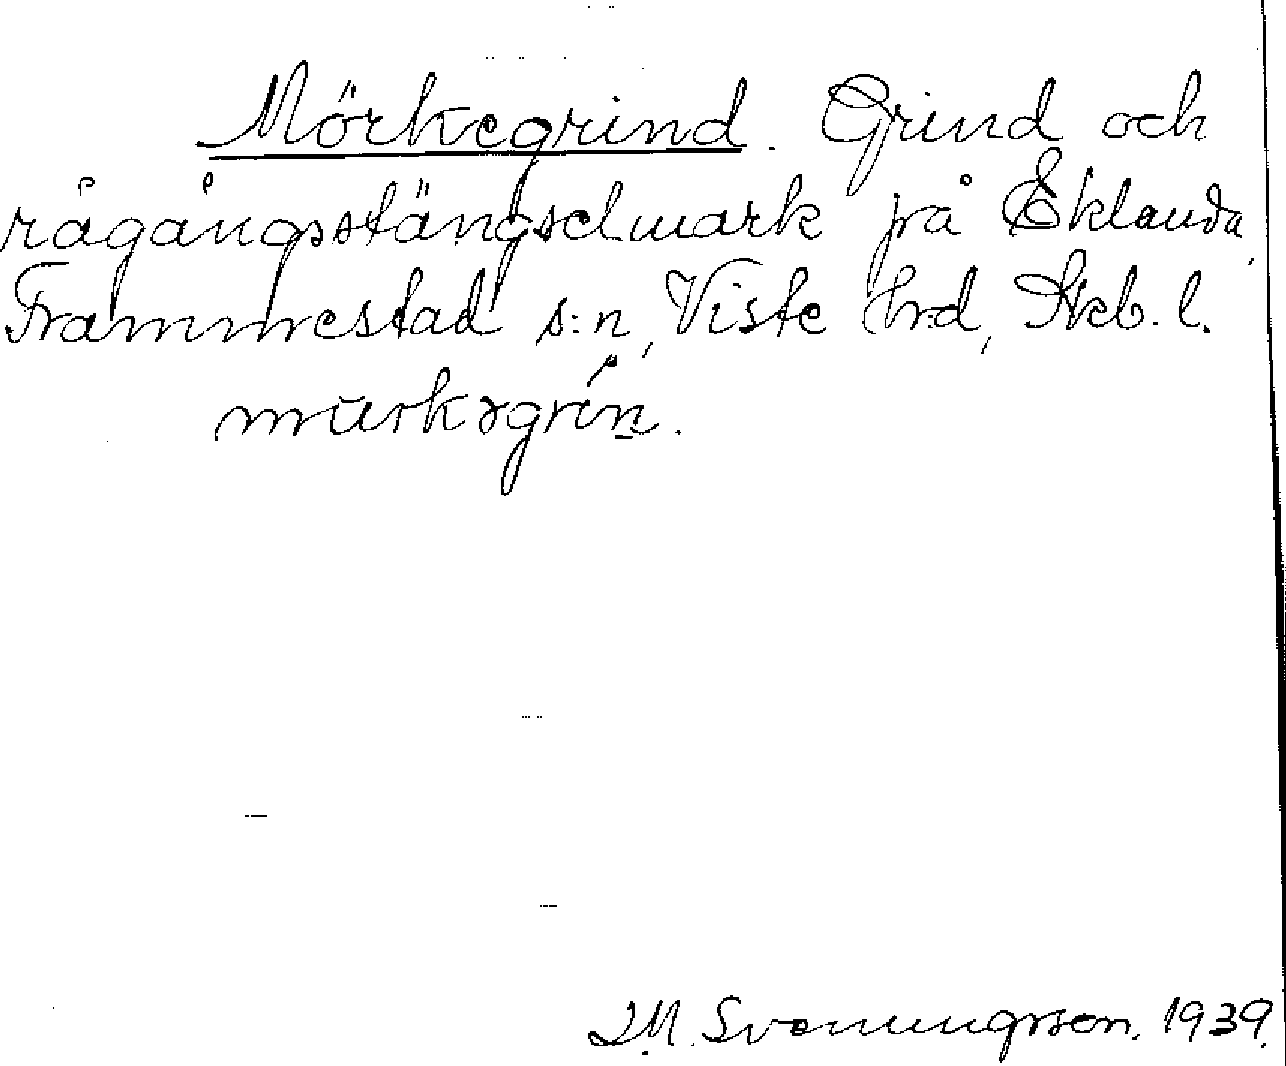 Mörkegrind. Grind och
rågångsstängselmark på Eklanda,
Frammestad s:n, Viste hrd, Skb. l.
murkəgrín.
J.M. Svenungsson. 1939.